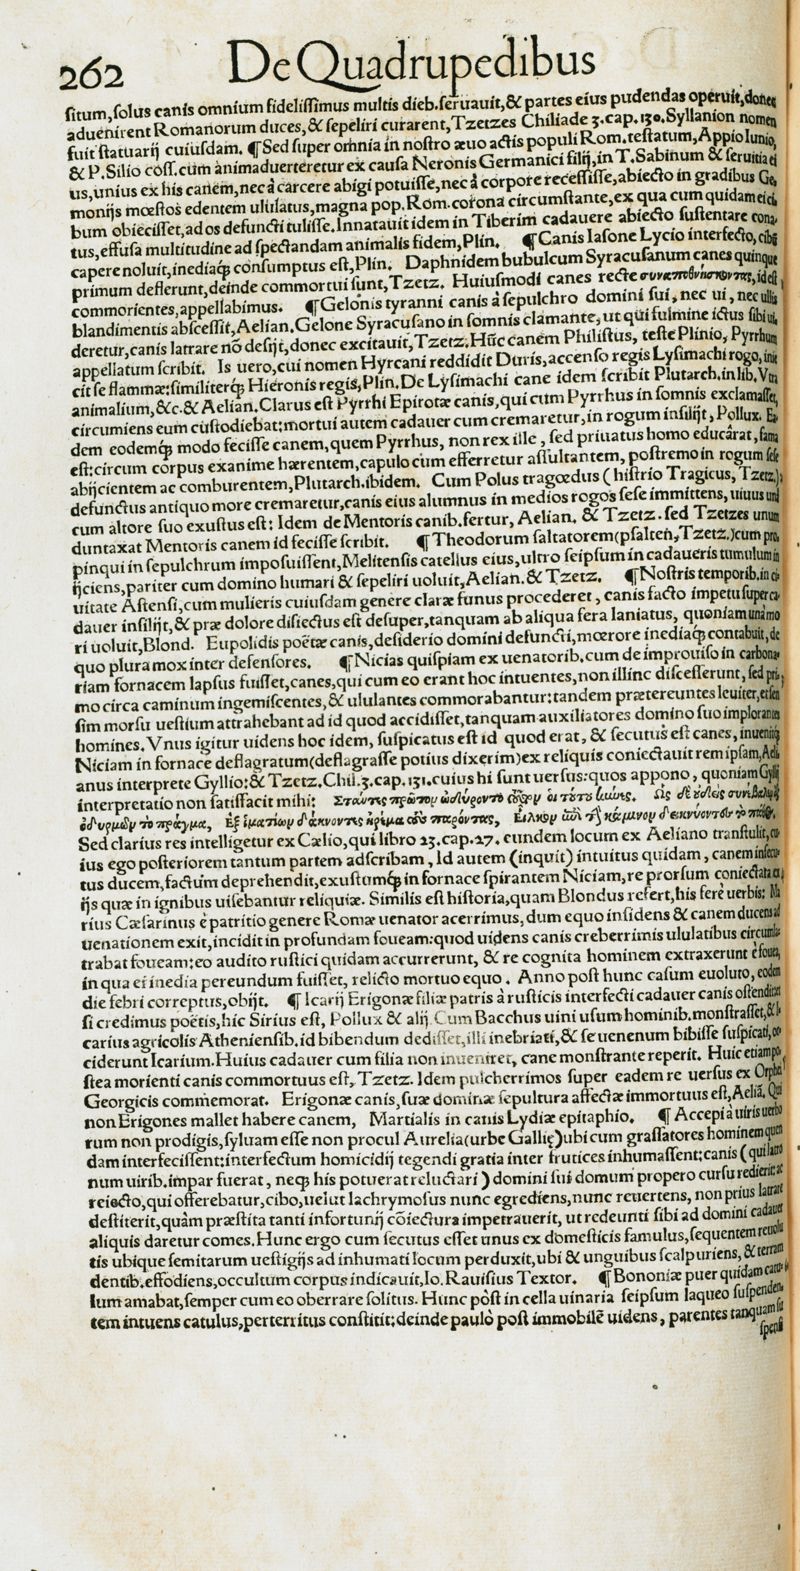 262 De Quadrupedibus
situm, solus canis omnium fidelissimus multis dieb. seruauit, & partes eius pudendas operuit, donec
aduenirent Romanorum duces, & sepeliri curarent, Tzetzes Chiliade 3. cap. 130. Syllanion nomen
fuit statuarij cuiusdam. ¶ Sed super omnia in nostro æuo actis populi Rom. testatum, Appio Iunio,
& P. Silio coss. cum animaduerteretur ex causa Neronis Germanici filij, in T. Sabinum & seruitia ei
us, unius ex his canem, nec à carcere abigi potuisse, nec à corpore recessisse, abiecto in gradibus Ge,
monijs mœstos edentem ululatus, magna pop. Rom. corona circumstante, ex qua cum quidam ei ci,
bum obiecisset, ad os defuncti tulisse. Innatauit idem in Tiberim cadauere abiecto sustentare cona,
tus, effusa multitudine ad spectandam animalis fidem, Plin. ¶ Canis Iasone Lycio interfecto, cibũ
capere noluit, inediaq; consumptus est, Plin. Daphnidem bubulcum Syracusanum canes quinque
primum deflerunt, deinde commortui sunt, Tzetz. Huiusmodi canes recte συναποθνήσκοντας, id est,
commorientes, appellabimus. ¶ Gelonis tyranni canis à sepulchro domini sui, nec ui, nec ullis
blandimentis abscessit, Aelian. Gelone Syracusano in somnis clamante, ut qui fulmine ictus sibi ui,
deretur, canis latrare nõ desijt, donec excitauit, Tzetz. Hũc canem Philistus, teste Plinio, Pyrrhum
appellatum scribit. Is uero, cui nomen Hyrcani reddidit Duris, accenso regis Lysimachi rogo, inie
cit se flammæ: similiterq; Hieronis regis, Plin. De Lysimachi cane idem scribit Plutarch. in lib. Vtra
animalium, &c. & Aelian. Clarus est Pyrrhi Epirotæ canis, qui cum Pyrrhus in somnis exclamasset,
circumiens eum custodiebat: mortui autem cadauer cum cremaretur, in rogum insilijt, Pollux. Ea,
dem eodemq; modo fecisse canem, quem Pyrrhus, non rex ille, sed priuatus homo educârat, fama
est: circum corpus exanime hærentem, capulo cum efferretur assultantem, postremo in rogum sese
abijcientem ac comburentem, Plutarch. ibidem. Cum Polus tragœdus (histrio Tragicus, Tzetz.)
defunctus antiquo more cremaretur, canis eius alumnus in medios rogos sese immittens, uiuus unà
cum altore suo exustus est: Idem de Mentoris canib. fertur, Aelian. & Tzetz. sed Tzetzes unum
duntaxat Mentoris canem id fecisse scribit. ¶ Theodorum saltatorem (psalten, Tzetz.) cum pro,
pinqui in sepulchrum imposuissent, Melitensis catellus eius, ultro seipsum in cadaueris tumulum in
ijciens, pariter cum domino humari & sepeliri uoluit, Aelian. & Tzetz. ¶ Nostris temporib. in ci,
uitate Astensi, cum mulieris cuiusdam genere claræ funus procederet, canis facto impetu super ca,
dauer insilijt, & præ dolore disiectus est desuper, tanquam ab aliqua fera laniatus, quoniam unà mo
ri uoluit, Blond. Eupolidis poëtæ canis, desiderio domini defuncti, mœrore inediaq; contabuit, de
quo plura mox inter defensores. ¶ Nicias quispiam ex uenatorib. cum de improuiso in carbona,
riam fornacem lapsus fuisset, canes, qui cum eo erant hoc intuentes, non illinc discesserunt, sed pri,
mo circa caminum ingemiscentes, & ululantes commorabantur: tandem prætereuntes leuiter, et sen
sim morsu uestium attrahebant ad id quod accidisset, tanquam auxiliatores domino suo implorantes
homines. Vnus igitur uidens hoc idem, suspicatus est id quod erat, & secutus est canes, inuenitq;
Niciam in fornace deflagratum (deflagrasse potius dixerim) ex reliquis coniectauit rem ipsam, Aeli
anus interprete Gyllio: & Tzetz. Chil. 3. cap. 131. cuius hi sunt uersus: quos appono, quoniam Gyllij
interpretatio non satisfacit mihi:
Sed clarius res intelligetur ex Cælio, qui libro 23. cap. 27. eundem locum ex Aeliano transtulit, cu,
ius ego posteriorem tantum partem adscribam, Id autem (inquit) intuitus quidam, canem insecu,
tus ducem, factum deprehendit, exustumq; in fornace spirantem Niciam, re prorsum coniectata ex
ijs quæ in ignibus uisebantur reliquiæ. Similis est historia, quam Blondus refert, his ferè uerbis: Ma
rius Cæsarinus è patritio genere Romæ uenator acerrimus, dum equo insidens & canem ducens ad
uenationem exit, incidit in profundam foueam: quod uidens canis creberrimis ululatibus circumla,
trabat foueam: eo audito rustici quidam accurrerunt, & re cognita hominem extraxerunt è fouea,
in qua ei inedia pereundum fuisset, relicto mortuo equo. Anno post hunc casum euoluto, eodem
die febri correptus, obijt. ¶ Icarij Erigonæ filiæ patris à rusticis interfecti cadauer canis ostendit:
si credimus poëtis, hic Sirius est, Pollux & alij. Cum Bacchus uini usum hominib. monstrasset, & I,
carius agricolis Atheniensib. id bibendum dedisset, illi inebriati, & se uenenum bibisse suspicati, oc,
ciderunt Icarium. Huius cadauer cum filia non inueniret, cane monstrante reperit. Huic etiam po,
stea morienti canis commortuus est, Tzetz. Idem pulcherrimos super eadem re uersus ex Orphei
Georgicis commemorat. Erigonæ canis, suæ dominæ sepultura affectæ immortuus est, Aeliã. Qui
non Erigones mallet habere canem, Martialis in canis Lydiæ epitaphio. ¶ Accepi à uiris uerbo
rum non prodigis, syluam esse non procul Aurelia (urbe Gallię) ubi cum grassatores hominem quen
dam interfecissent: interfectum homicidij tegendi gratia inter frutices inhumassent: canis (qui latro
num uirib. impar fuerat, neq; his potuerat reluctari) domini sui domum propero cursu redierit: ac
reiecto, qui offerebatur, cibo, uelut lachrymosus nunc egrediens, nunc reuertens, non prius latrare
destiterit, quàm præstita tanti infortunij cõiectura impetrauerit, ut redeunti sibi ad domini cadauer
aliquis daretur comes. Hunc ergo cum secutus esset unus ex domesticis famulus, sequentem reuolu
tis ubique semitarum uestigijs ad inhumati locum perduxit, ubi & unguibus scalpuriens, & terram
dentib. effodiens, occultum corpus indicauit, Io. Rauisius Textor. ¶ Bononiæ puer quidam catel,
lum amabat, semper cum eo oberrare solitus. Hunc pòst in cella uinaria seipsum laqueo suspenden,
tem intuens catulus, perterritus constitit: deinde paulò post immobilẽ uidens, parentes tanquam su
spensi